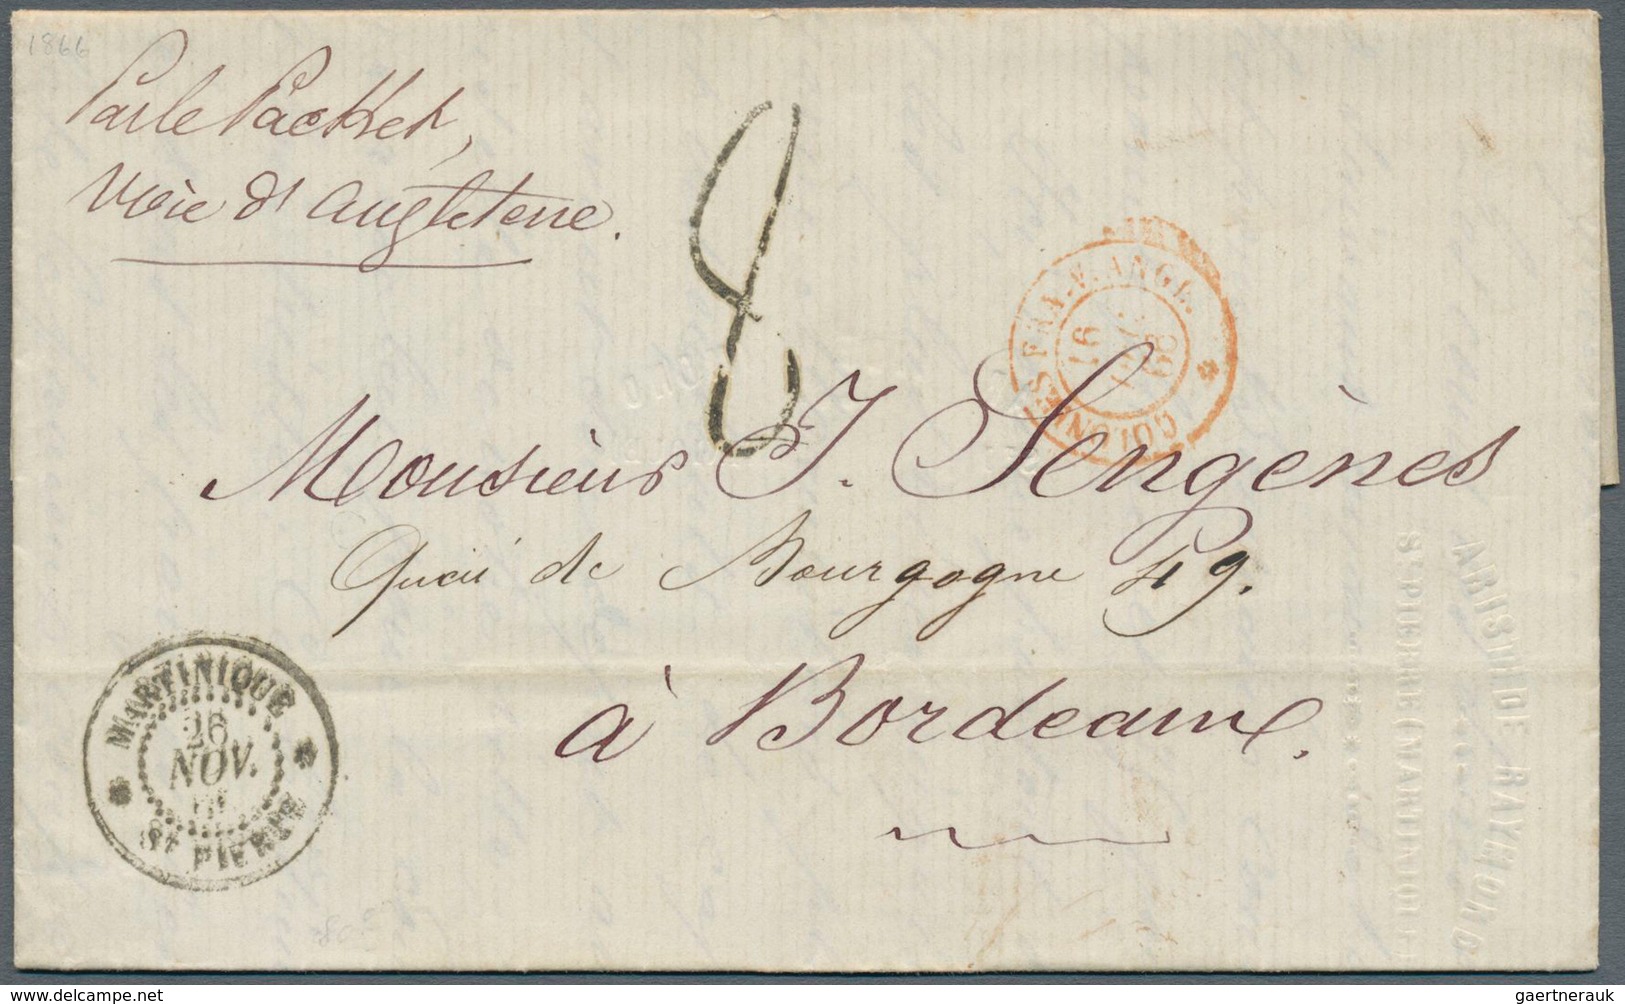 1866
Par le Packet,
voie d'Angleterre.
8
COLONIES FRA. V. ANGL.
16
66
Monsieur J. Sengènes
Quai de Bourgogne 49.
à Bordeaux.
MARTINIQUE
26
NOV.
ST PIERRE
ST PIERRE (MARTINIQUE)
DE RAYMOND
gaertnerauk